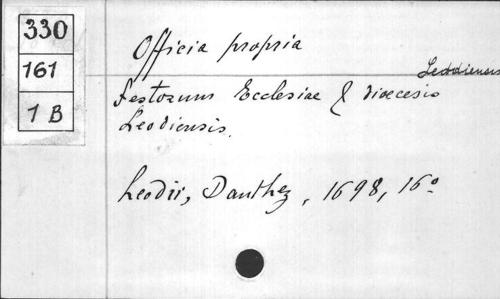 330
161
1 B
Officia propria
Leodiensis
Festorum Ecclesiae & dioecesis
Leodiensis.
Leodii, Danthez, 1698, 16°